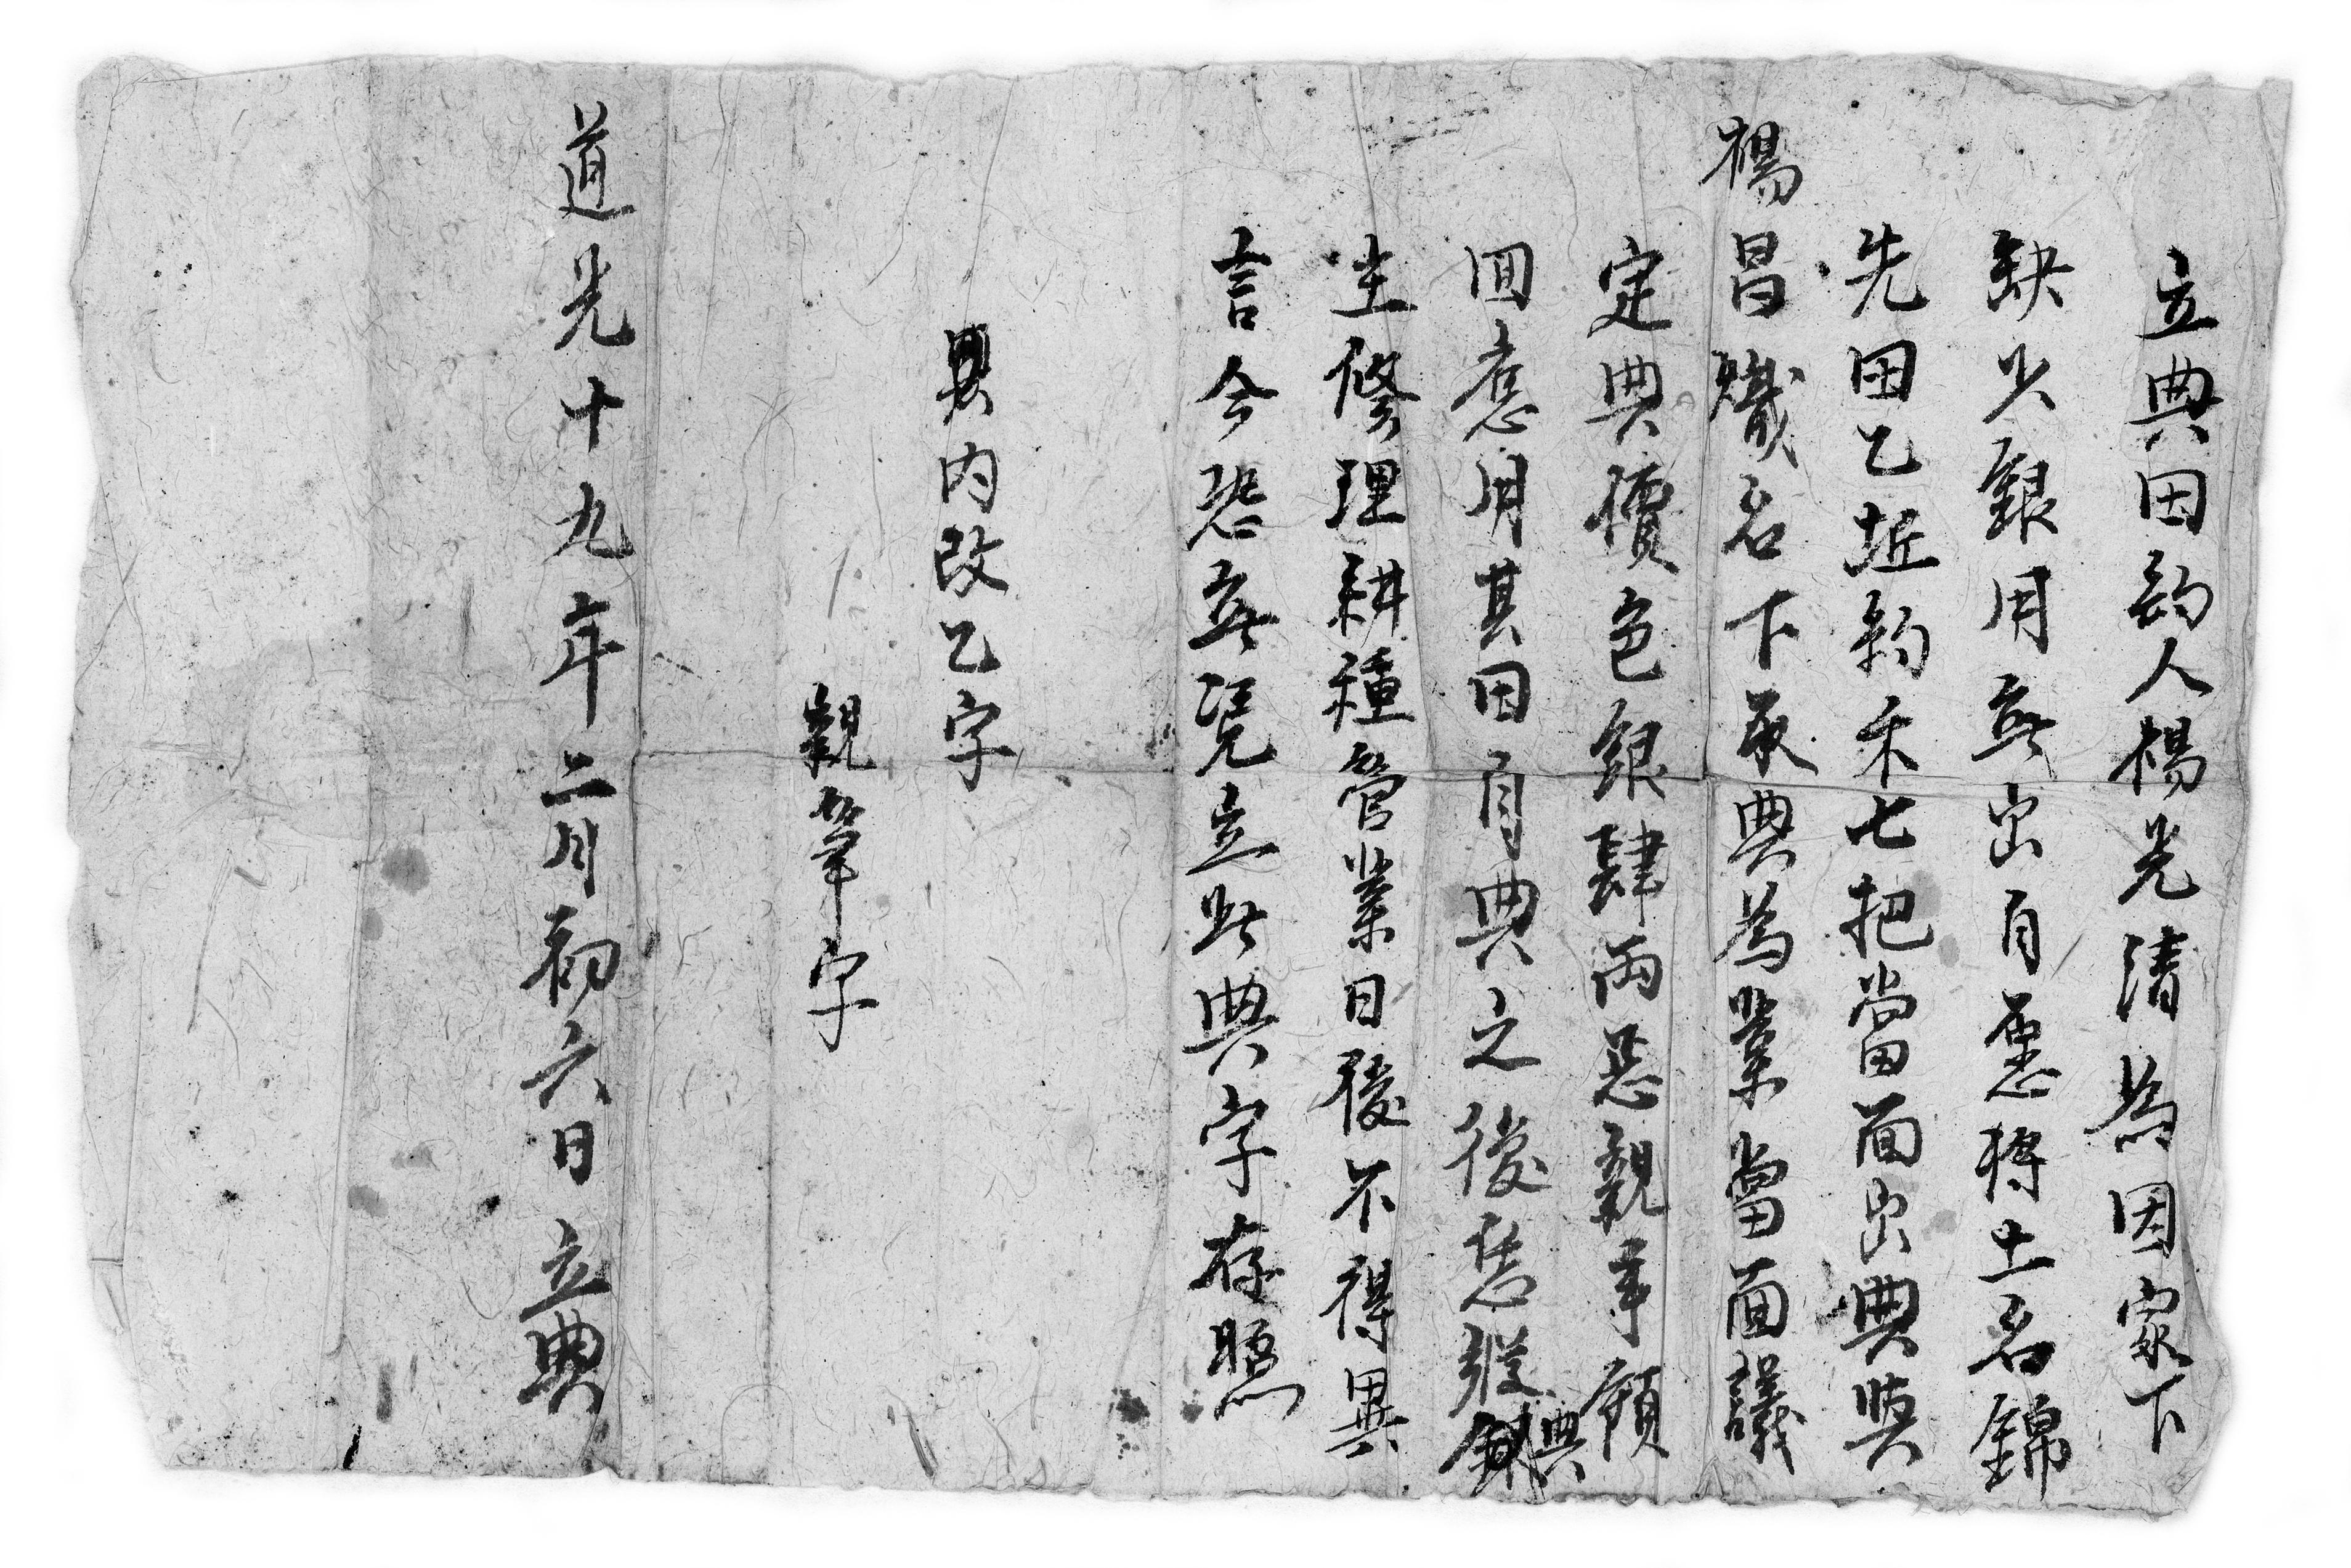 立典田約人楊光清為因家下
缺少銀用無出自愿將土名錦
先田乙坵約禾七把當面出典與
楊昌熾名下承典為業當面議
定典價色銀肆兩忍親手領
回應用其田自典之後恁從典
主修理耕種管業日後不得異
言今恐無憑立此典字存照
與內改乙字
親筆字
道光十九年二月初六日立典